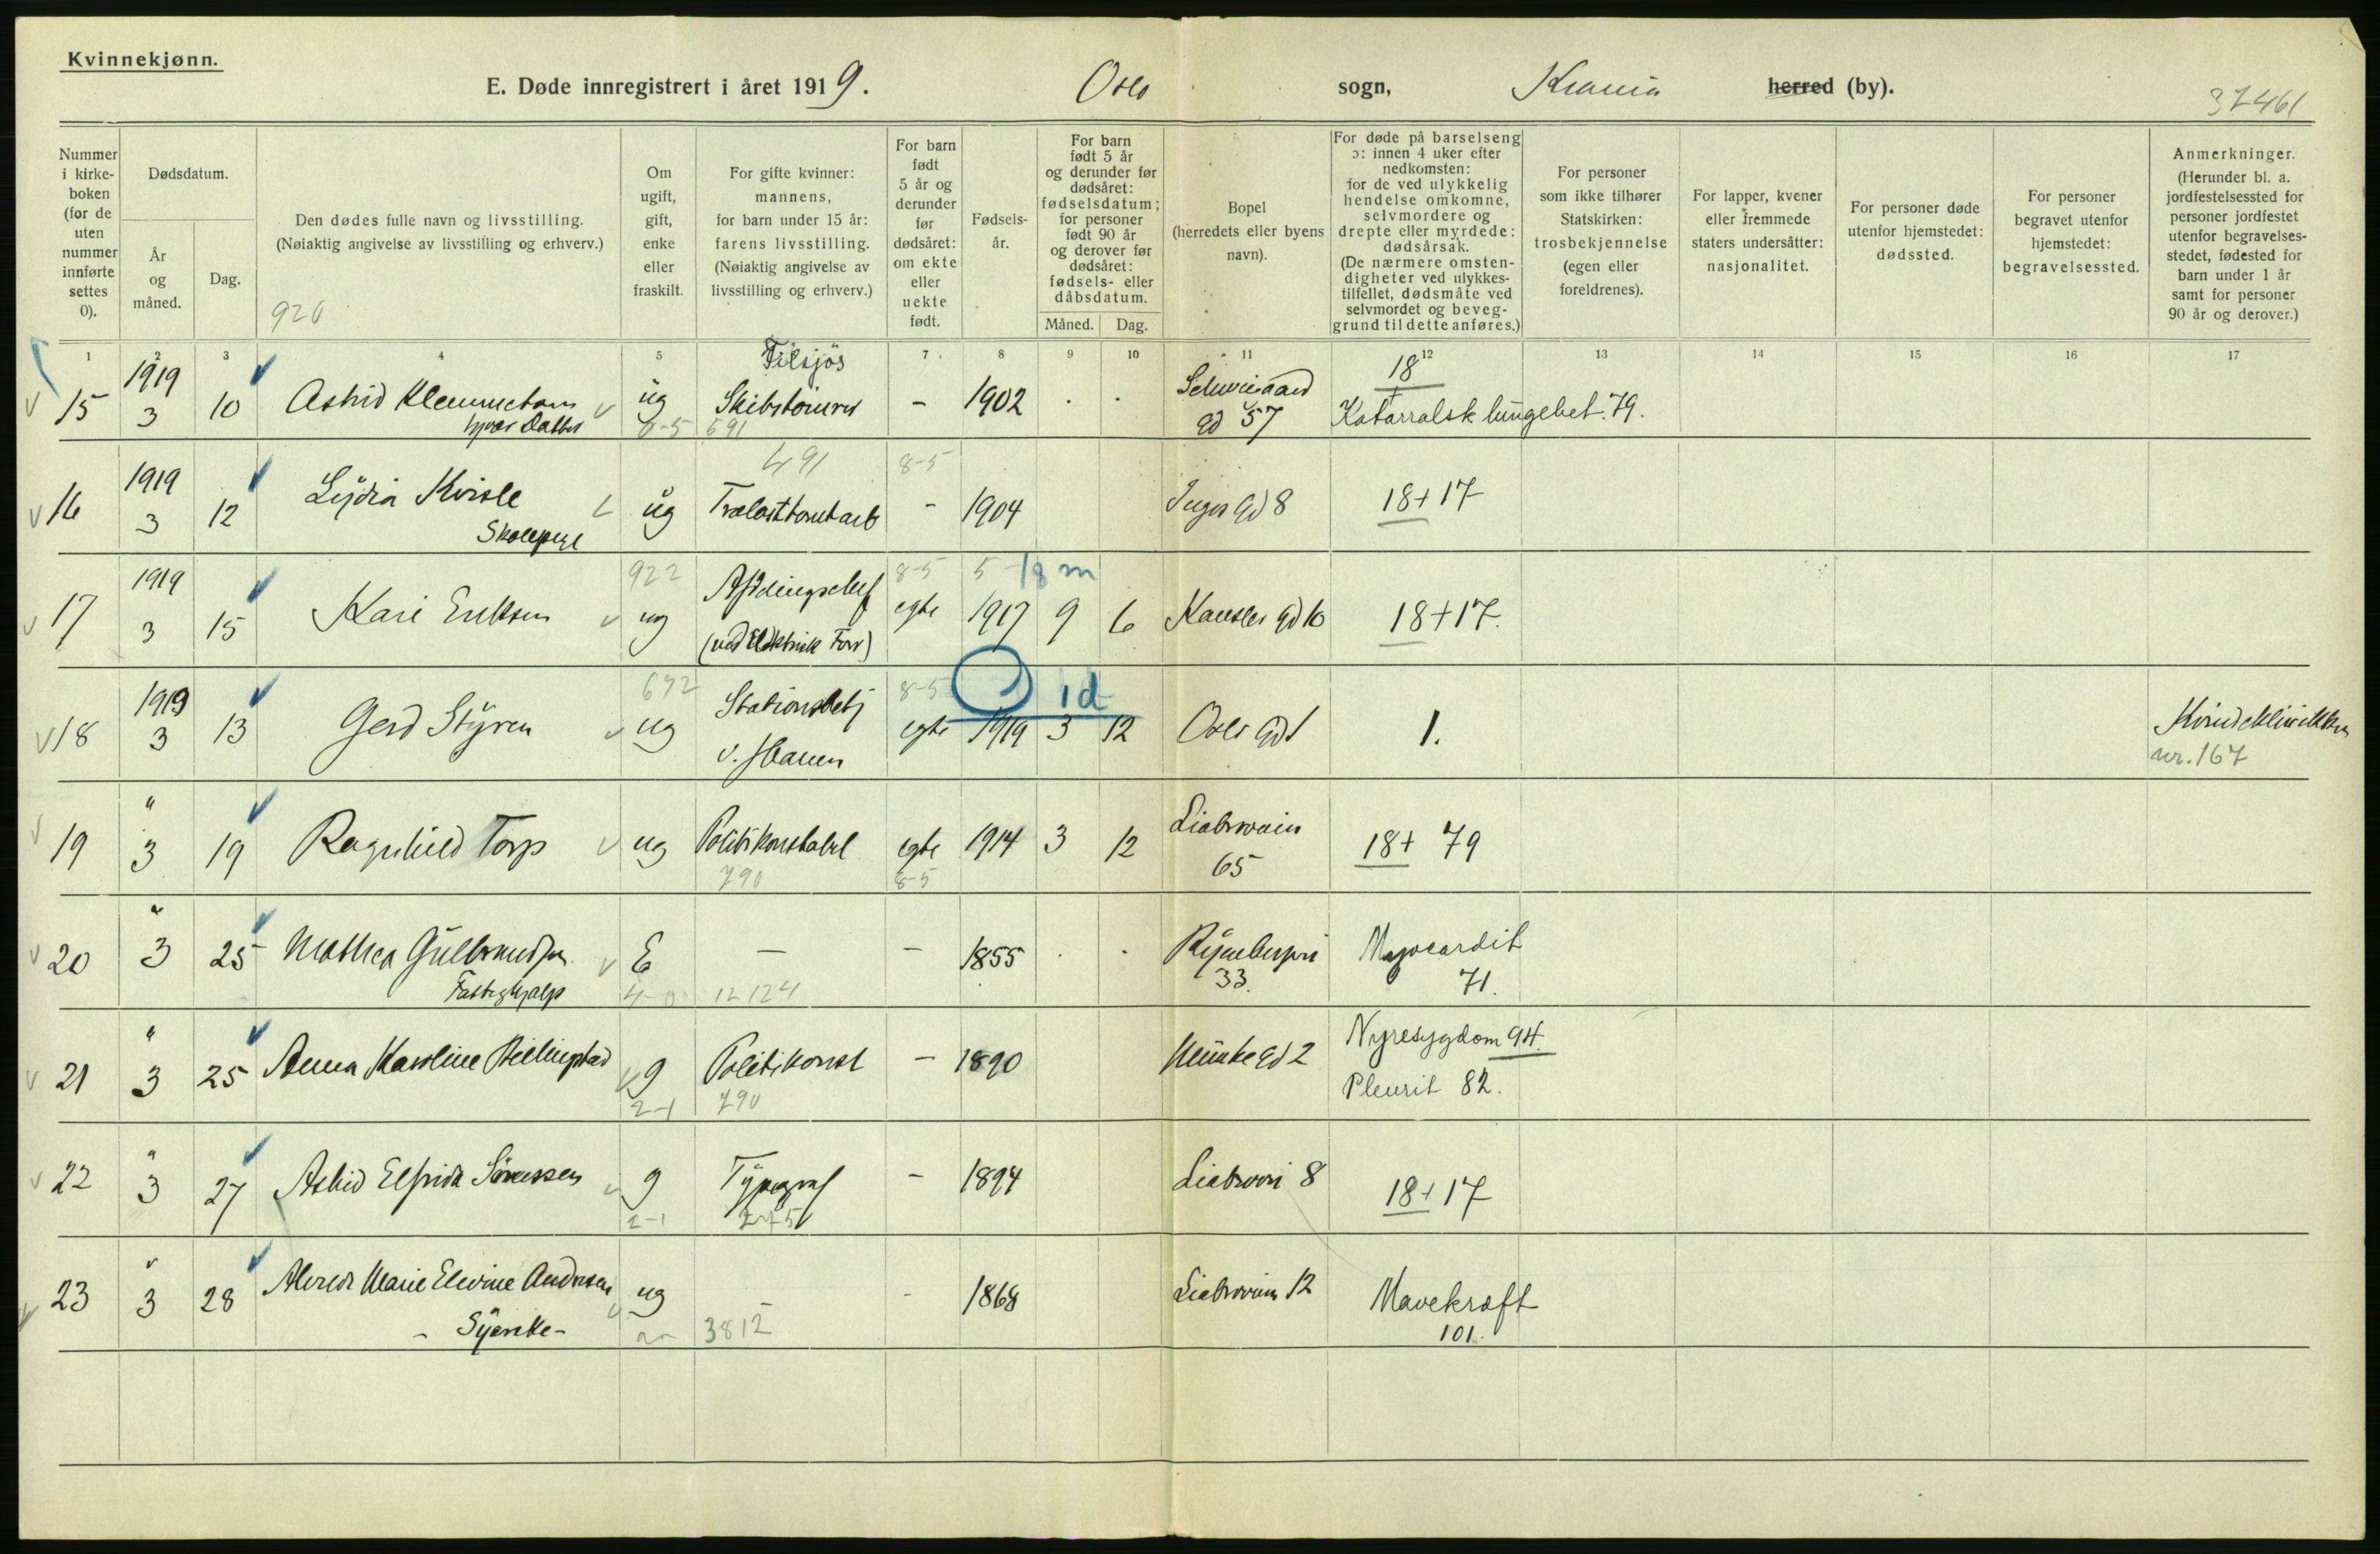 Kvinnekjønn.
E. Døde innregistrert i året 1919. Oslo sogn, Krania herred (by).
37461
Nummer i kirke-boken (for de uten nummer innførte settes 0).
Dødsdatum.
År og måned.
Dag.
Den dødes fulle navn og livsstilling.
(Nøiaktig angivelse av livsstilling og erhverv.)
920
Om ugift, gift, enke eller fraskilt.
For gifte kvinner: mannens, for barn under 15 år: farens livsstilling. (Nøiaktig angivelse av livsstilling og erhverv.)
For barn født 5 år og derunder før dødsåret: om ekte eller uekte født.
Fødsels-år.
For barn født 5 år og derunder før dødsåret: fødselsdatum; for personer født 90 år og derover før dødsåret: fødsels- eller dåbsdatum.
Måned. Dag.
Bopel (herredets eller byens navn).
For døde på barselseng ɔ: innen 4 uker efter nedkomsten: for de ved ulykkelig hendelse omkomne, selvmordere og drepte eller myrdede: dødsårsak. (De nærmere omsten-digheter ved ulykkes-tilfellet, dødsmåte ved selvmordet og beveg-grund til dette anføres.)
For personer som ikke tilhører Statskirken: trosbekjennelse (egen eller foreldrenes).
For lapper, kvener eller fremmede staters undersåtter: nasjonalitet.
For personer døde utenfor hjemstedet: dødssted.
For personer begravet utenfor hjemstedet: begravelsessted.
Anmerkninger. (Herunder bl. a. jordfestelsessted for personer jordfestet utenfor begravelses-stedet, fødested for barn under 1 år samt for personer 90 år og derover.)
1 2 3 4 5 7 8 9 10 11 12 13 14 15 16 17
15 1919 3 10 Astrid Klemmetsen ug Skibstømrer - 1902 . . Schweigaard gd 57 18 Katarralsk lungebet. 79.
hjv. Datter 0-5 591
491 8-5
16 1919 3 12 Lydia Kvisle ug Trælasttomtarb - 1904 Inges Gd 8 18+17
Skolepige
922 8-5 5 18 m
17 1919 3 15 Kari Eriksen ug Afdelingschef egte 1917 9 6 Kansler Gd 10 18+17.
(ved Elektrisk Forr)
692 8-5 1d
18 1919 3 13 Gerd Styren ug Stationsbetj egte 1919 3 12 Oslo Gd 1 1. Kvindeklinikken
v. Banen nr. 167
19 " 3 19 Ragnhild Torp ug Politikonstabel egte 1914 3 12 Liabrovein 65 18+ 79
790 8-5
20 " 3 25 Mathea Gulbrandsen E — - 1855 . . Ryenbergvei 33. Myocardit 71.
Fattighjælp 4-0 12124
21 " 3 25 Anna Karoline Billingstad g Politikonst - 1890 Munke Gd 2 Nyresygdom 94.
2-1 790 Pleurit 82.
22 " 3 27 Astrid Elfrida Sørenssen g Typograf - 1894 Liabrovei 8 18+17
2-1 275
23 " 3 28 Marie Elevine Andresen ug - - 1868 Liabrovein 12 Mavekræft 101.
- Syerske - 3812